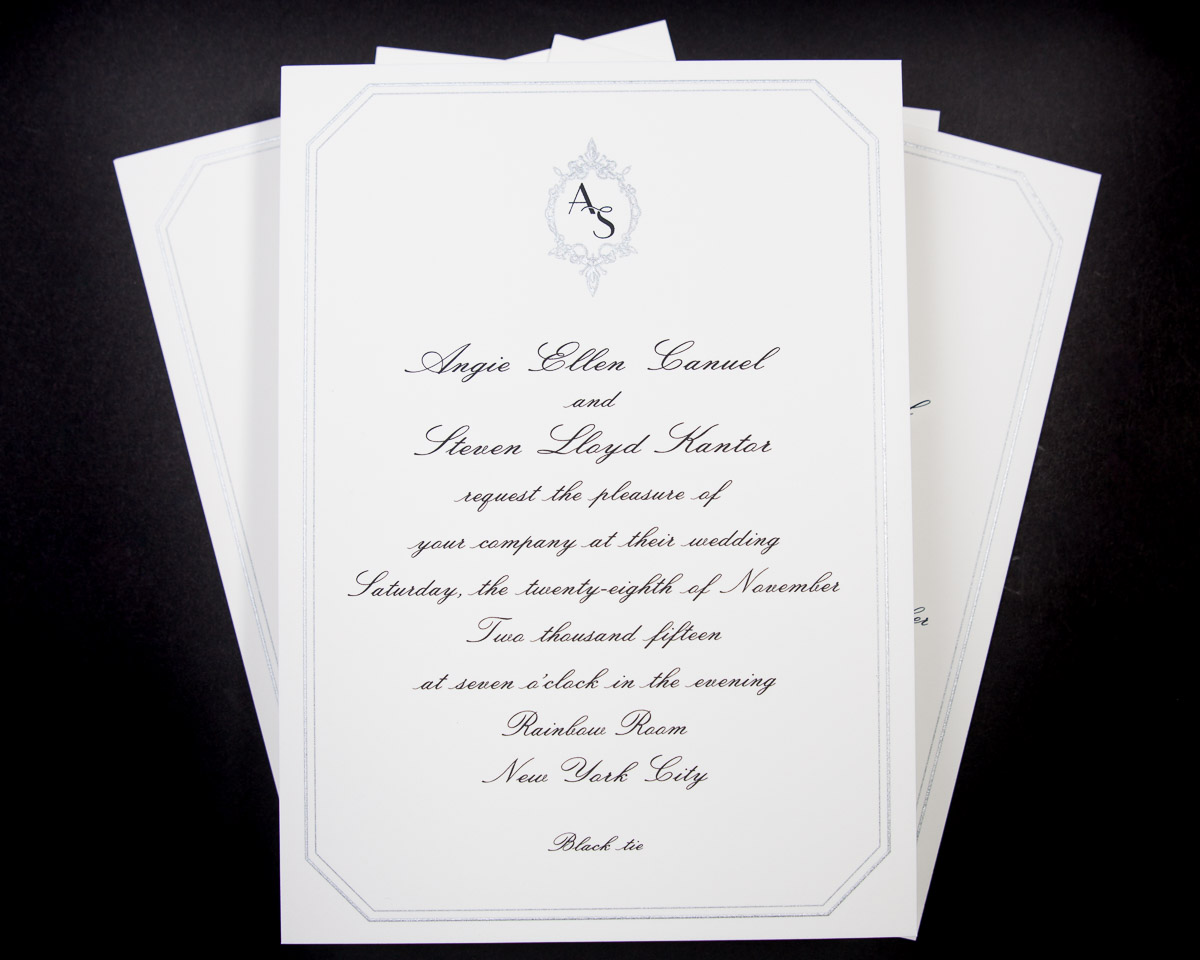 AS
Angie Ellen Canuel
and
Steven Lloyd Kantor
request the pleasure of
your company at their wedding
Saturday, the twenty-eighth of November
Two thousand fifteen
at seven o'clock in the evening
Rainbow Room
New York City
Black tie